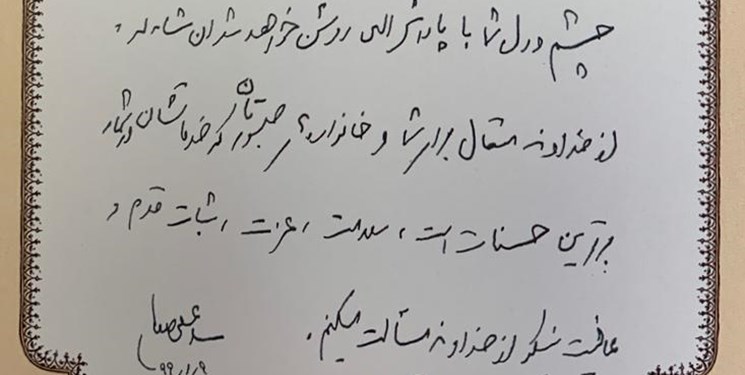 چشم و دل شما با پاداش الهی روشن خواهد شد ان شاء الله.
از خداوند متعال برای شما و خانواده صبورتان که خدماتشان در شمار
برترین حسنات است، سلامت، عزت، ثبات قدم و
عاقبت نیکو از خداوند مسألت میکنم.
۹۹/۱/۹